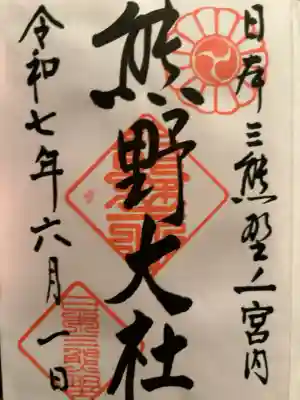 日本三熊埜ノ一宮内
熊野大社
令和七年六月一日